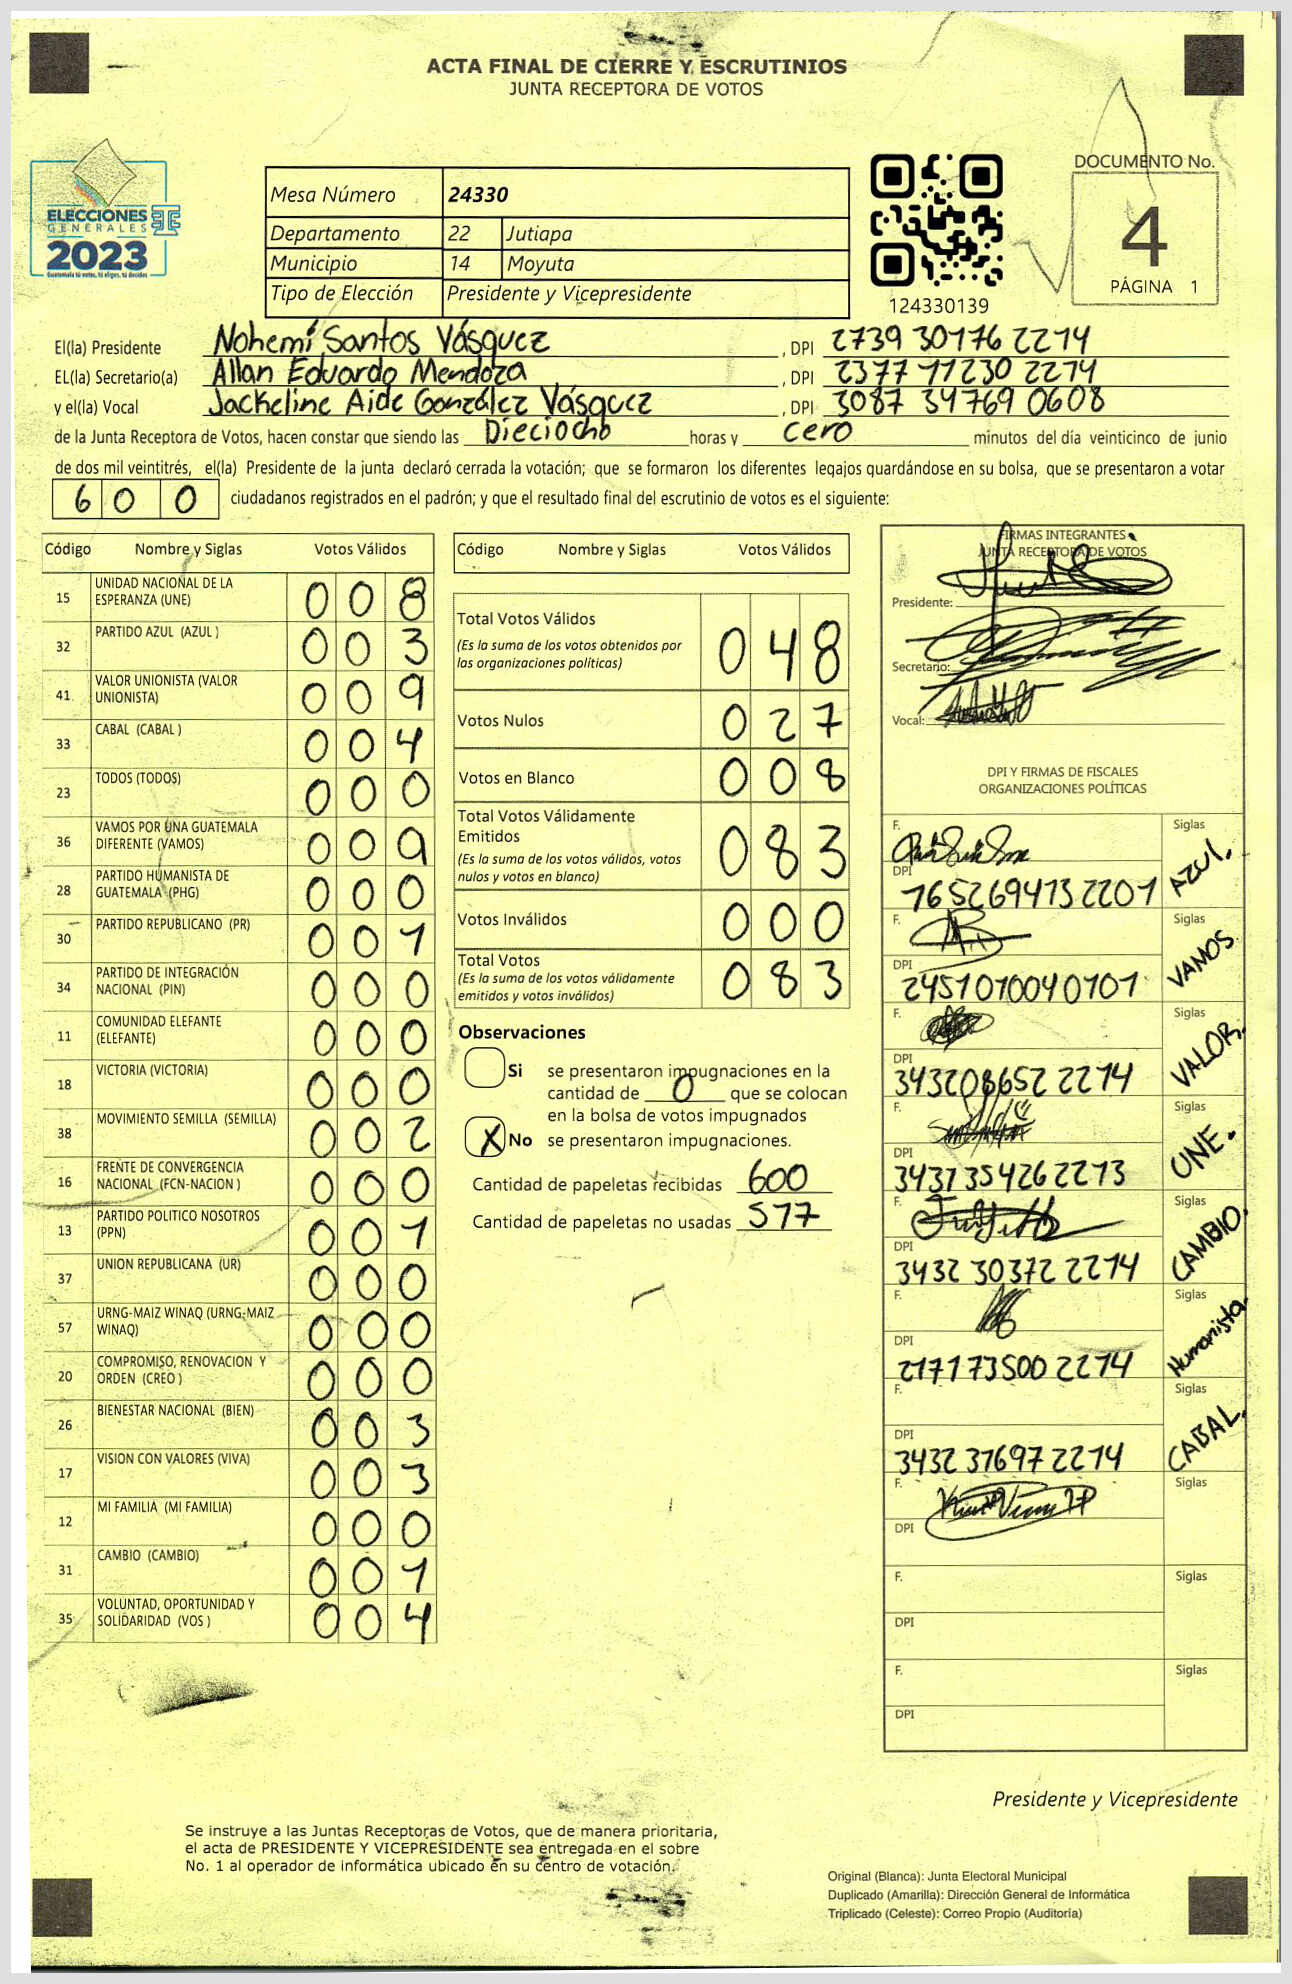 ACTA FINAL DE CIERRE Y ESCRUTINIOS
JUNTA RECEPTORA DE VOTOS
ELECCIONES
GENERALES
2023
Guatemala tú votas, tú eliges, tú decides
Mesa Número 24330
Departamento 22 Jutiapa
Municipio 14 Moyuta
Tipo de Elección Presidente y Vicepresidente
124330139
DOCUMENTO No.
4
PÁGINA 1
El(la) Presidente Nohemí Santos Vásquez , DPI 2739 30176 2214
EL(la) Secretario(a) Allan Eduardo Mendoza , DPI 2377 11230 2214
y el(la) Vocal Jackeline Aide González Vásquez , DPI 3087 34769 0608
de la Junta Receptora de Votos, hacen constar que siendo las Dieciocho horas y cero minutos del día veinticinco de junio
de dos mil veintitrés, el(la) Presidente de la junta declaró cerrada la votación; que se formaron los diferentes legajos quardándose en su bolsa, que se presentaron a votar
600 ciudadanos registrados en el padrón; y que el resultado final del escrutinio de votos es el siguiente:
Código Nombre y Siglas Votos Válidos
15 UNIDAD NACIONAL DE LA ESPERANZA (UNE) 008
32 PARTIDO AZUL (AZUL ) 003
41 VALOR UNIONISTA (VALOR UNIONISTA) 009
33 CABAL (CABAL ) 004
23 TODOS (TODOS) 000
36 VAMOS POR UNA GUATEMALA DIFERENTE (VAMOS) 009
28 PARTIDO HUMANISTA DE GUATEMALA (PHG) 000
30 PARTIDO REPUBLICANO (PR) 001
34 PARTIDO DE INTEGRACIÓN NACIONAL (PIN) 000
11 COMUNIDAD ELEFANTE (ELEFANTE) 000
18 VICTORIA (VICTORIA) 000
38 MOVIMIENTO SEMILLA (SEMILLA) 002
16 FRENTE DE CONVERGENCIA NACIONAL (FCN-NACION ) 000
13 PARTIDO POLITICO NOSOTROS (PPN) 001
37 UNION REPUBLICANA (UR) 000
57 URNG-MAIZ WINAQ (URNG-MAIZ WINAQ) 000
20 COMPROMISO, RENOVACION Y ORDEN (CREO ) 000
26 BIENESTAR NACIONAL (BIEN) 003
17 VISION CON VALORES (VIVA) 003
12 MI FAMILIA (MI FAMILIA) 000
31 CAMBIO (CAMBIO) 001
35 VOLUNTAD, OPORTUNIDAD Y SOLIDARIDAD (VOS ) 004
Código Nombre y Siglas Votos Válidos
Total Votos Válidos 048
(Es la suma de los votos obtenidos por las organizaciones políticas)
Votos Nulos 027
Votos en Blanco 008
Total Votos Válidamente Emitidos 083
(Es la suma de los votos válidos, votos nulos y votos en blanco)
Votos Inválidos 000
Total Votos 083
(Es la suma de los votos válidamente emitidos y votos inválidos)
Observaciones
Si se presentaron impugnaciones en la
cantidad de 0 que se colocan
en la bolsa de votos impugnados
X No se presentaron impugnaciones.
Cantidad de papeletas recibidas 600
Cantidad de papeletas no usadas 517
FIRMAS INTEGRANTES
JUNTA RECEPTORA DE VOTOS
Presidente:
Secretario:
Vocal:
DPI Y FIRMAS DE FISCALES
ORGANIZACIONES POLÍTICAS
F. Siglas AZUL.
DPI 1652694132201
F. Siglas VAMOS
DPI 2451010040101
F. Siglas VALOR.
DPI 3432086522214
F. Siglas UNE.
DPI 3431354262213
F. Siglas CAMBIO.
DPI 3432 30372 2214
F. Siglas Humanista.
DPI 2171735002214
F. Siglas CABAL.
DPI 3432 37697 2214
F. Siglas
DPI
F. Siglas
DPI
F. Siglas
DPI
Presidente y Vicepresidente
Se instruye a las Juntas Receptoras de Votos, que de manera prioritaria,
el acta de PRESIDENTE Y VICEPRESIDENTE sea entregada en el sobre
No. 1 al operador de informática ubicado en su centro de votación.
Original (Blanca): Junta Electoral Municipal
Duplicado (Amarilla): Dirección General de Informática
Triplicado (Celeste): Correo Propio (Auditoría)